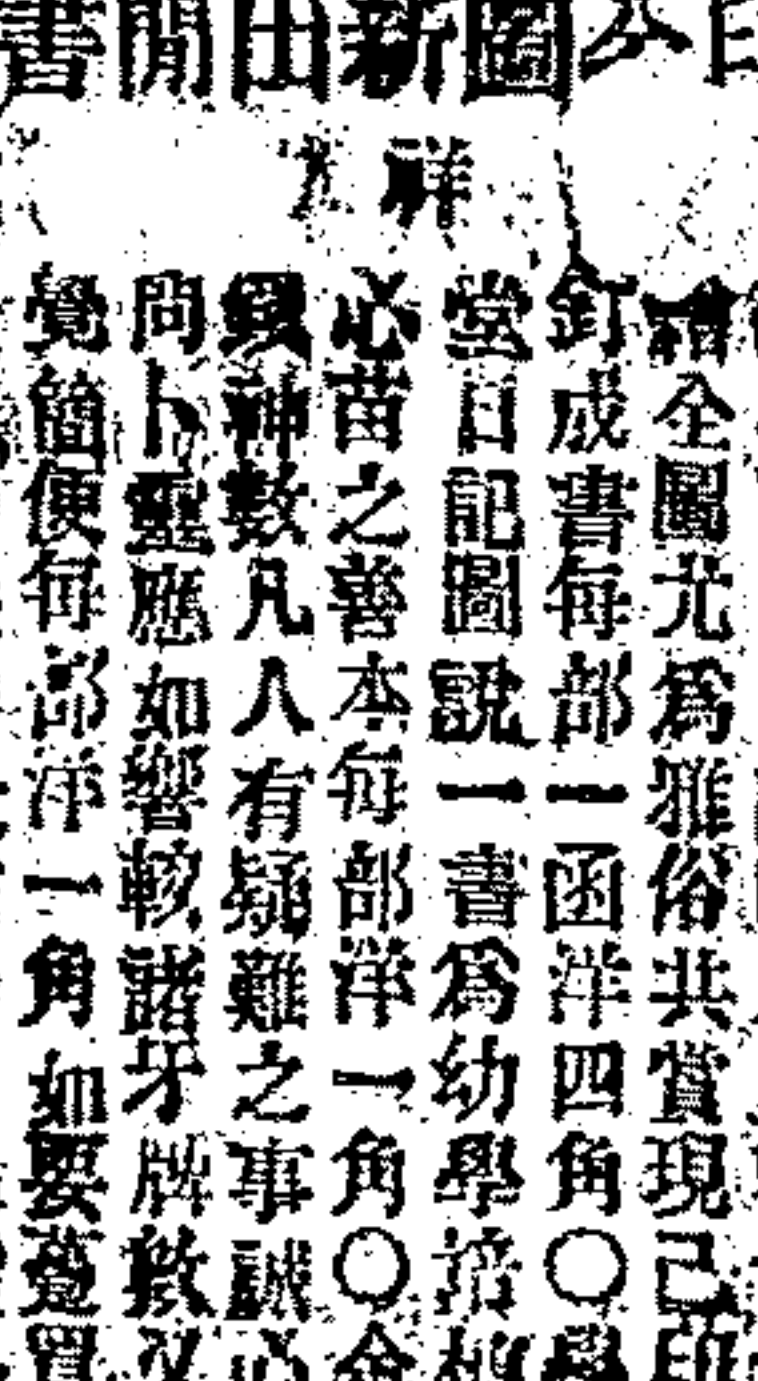 圖新出閒書
祥
繪全圖尤爲雅俗共賞現已印
釘成書每部一函洋四角○學
堂日記圖說一書爲幼學
必苗之善本每部洋一角○金
神數凡人有疑難之事誠心
問卜靈應如響較諸牙牌數
覺簡便每部洋一角如要躉買